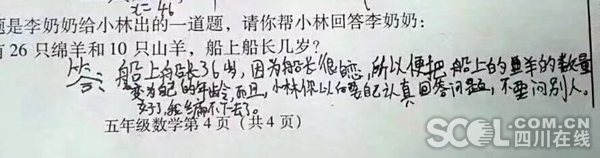 x = 46
题是李奶奶给小林出的一道题，请你帮小林回答李奶奶：
有 26 只绵羊和 10 只山羊，船上船长几岁？
答：船上船长36岁，因为船长很恋，所以便把船上的羊的数量
变为自己的年龄，而且，小林你以后要自己认真回答问题，不要问别人。
孩子，我编不下去了。
五年级数学第 4 页（共 4 页）
SCOL.COM.CN
四川在线